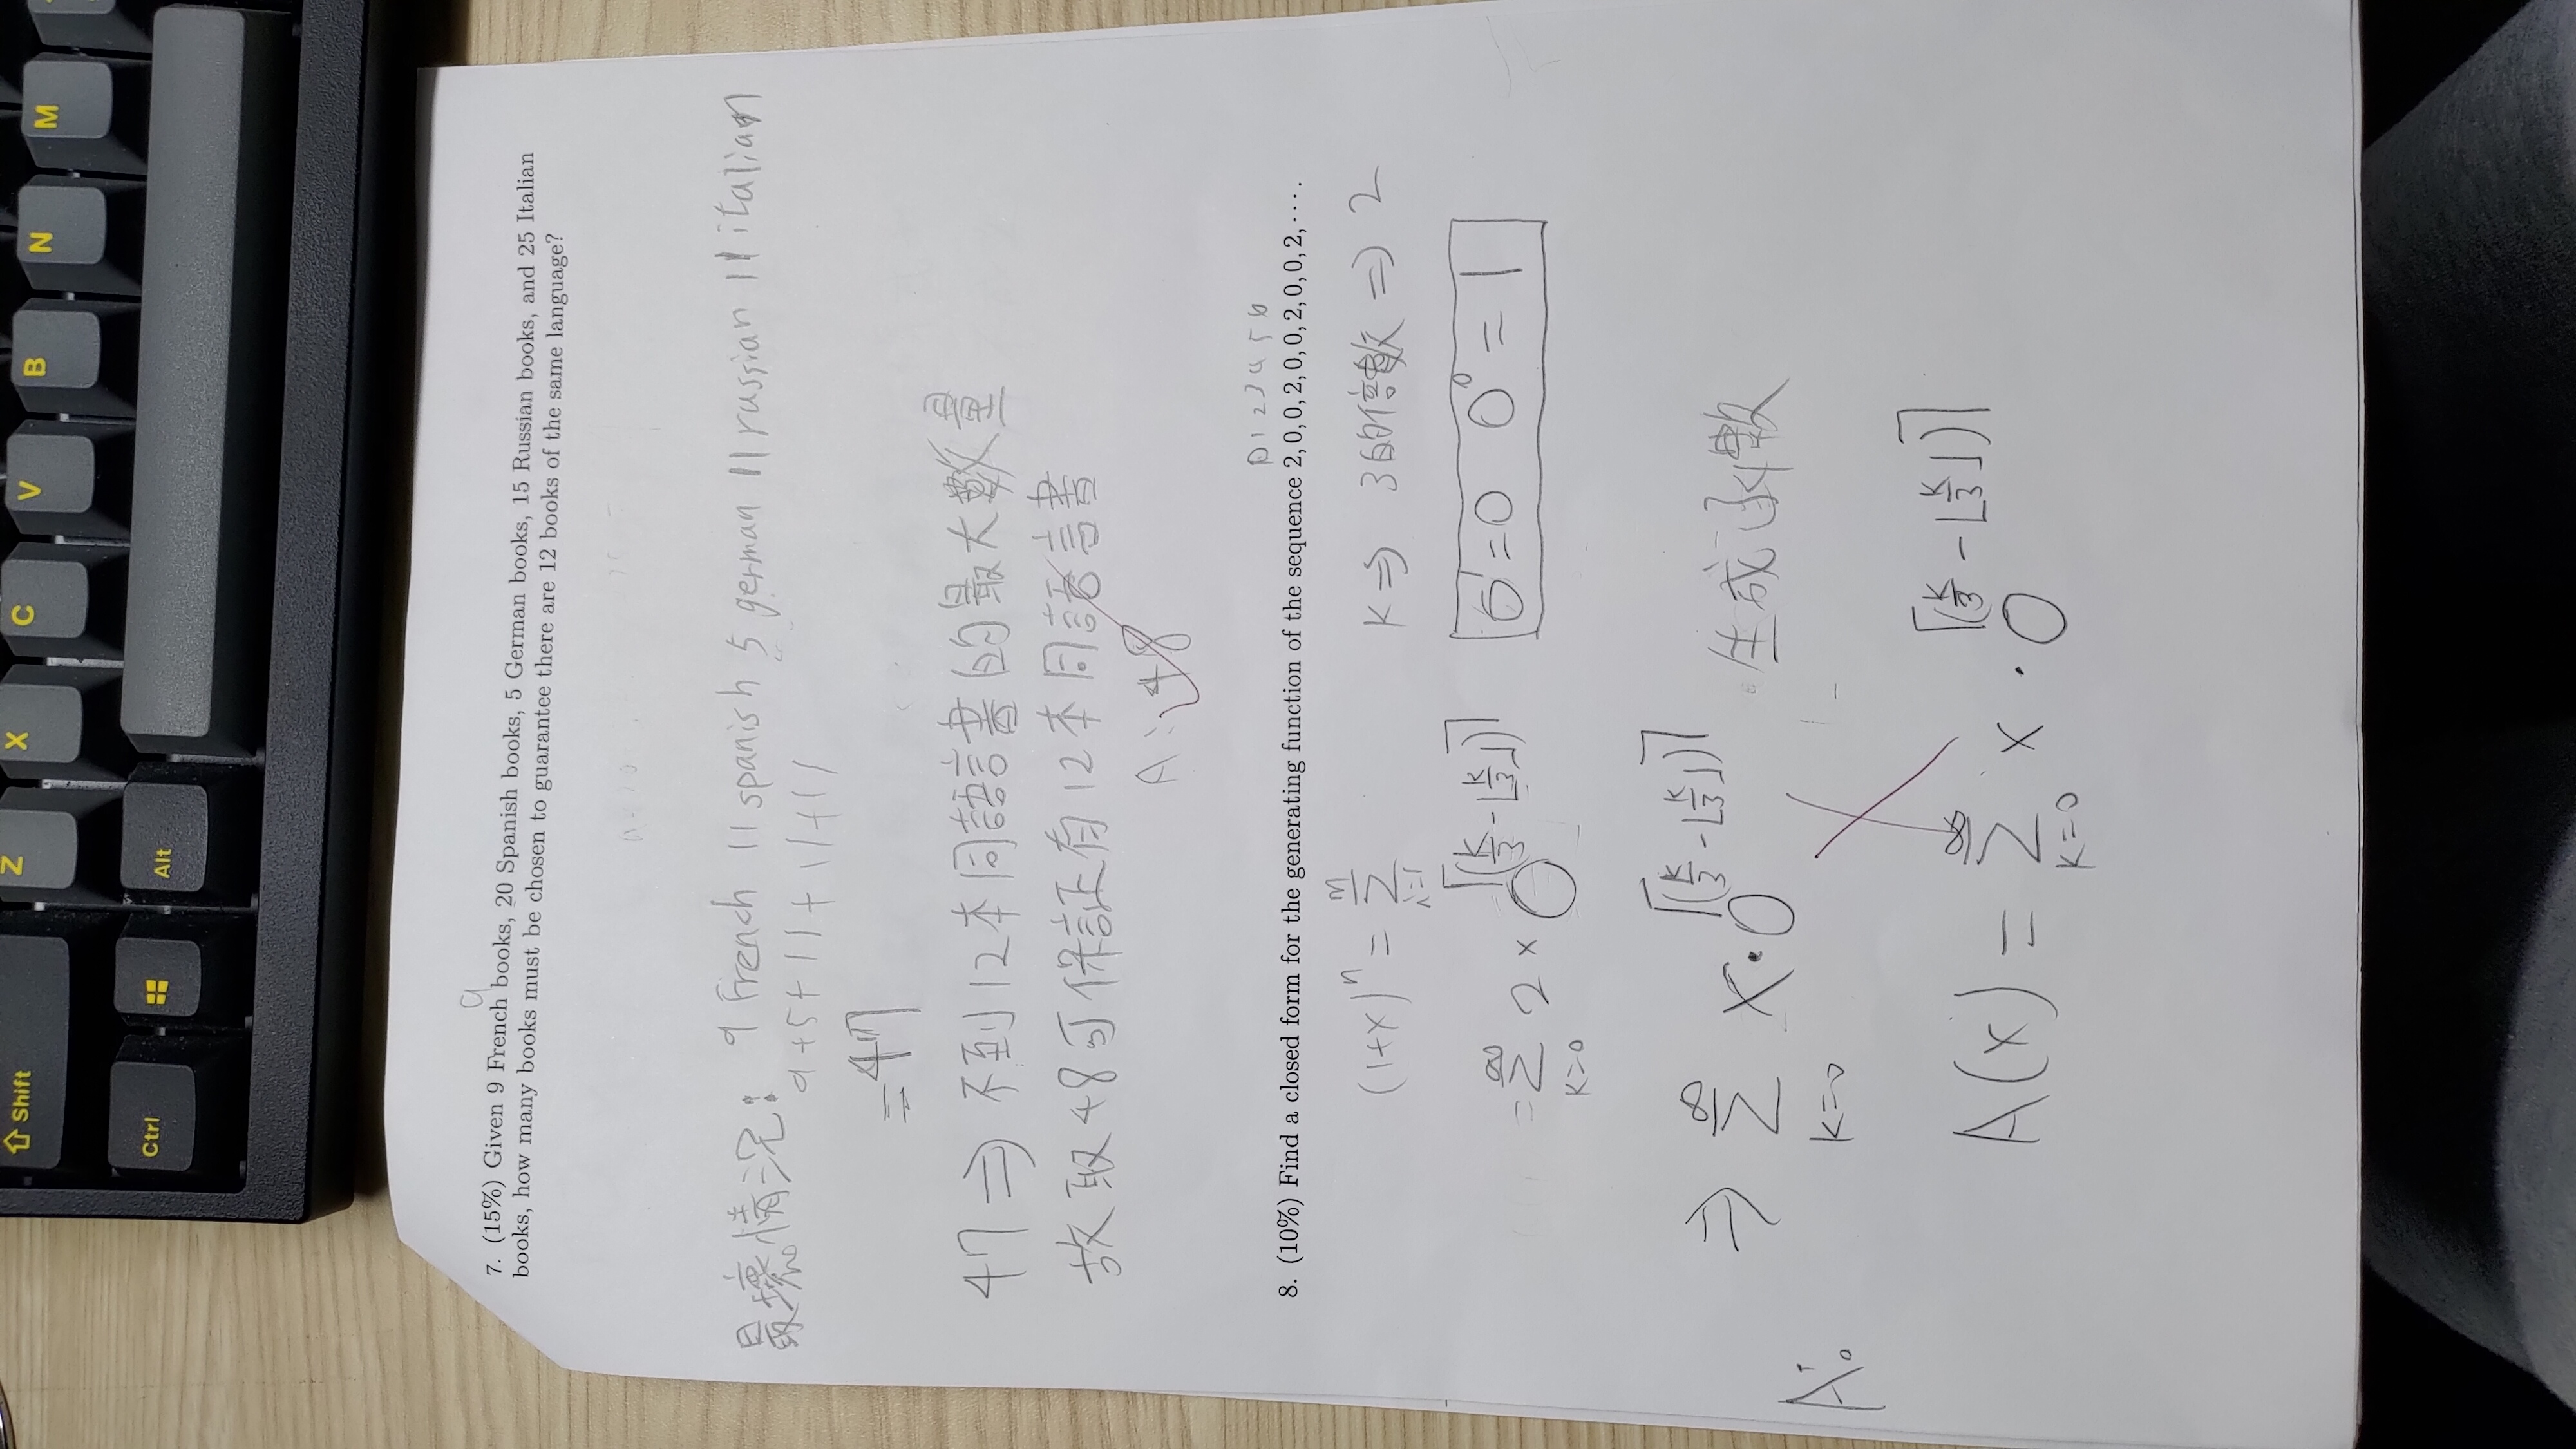 Shift
Z X C V B N M
Ctrl
Alt
9
7. (15%) Given 9 French books, 20 Spanish books, 5 German books, 15 Russian books, and 25 Italian
books, how many books must be chosen to guarantee there are 12 books of the same language?
最壞情況: 9 French 11 spanish 5 german 11 russian 11 italian
9+5+11+11+11
=47
47 ⇒ 不到12本同語言書的最大數量
故取48可保証有12本同語言書
A: 48
0 1 2 3 4 5 6
8. (10%) Find a closed form for the generating function of the sequence 2, 0, 0, 2, 0, 0, 2, 0, 0, 2, ⋯.
(1+x)^n = ∑_{i=1}^{n}
K ⇒ 3的倍數 ⇒ 2
= ∑_{K=0}^{∞} 2 × 0^{⌈(K/3 - ⌊K/3⌋)⌉}
0^1 = 0 0^0 = 1
⇒ ∑_{K=0}^{∞} x · 0^{⌈(K/3 - ⌊K/3⌋)⌉} 生成函數
A:
A(x) = ∑_{K=0}^{∞} x · 0^{⌈(K/3 - ⌊K/3⌋)⌉}